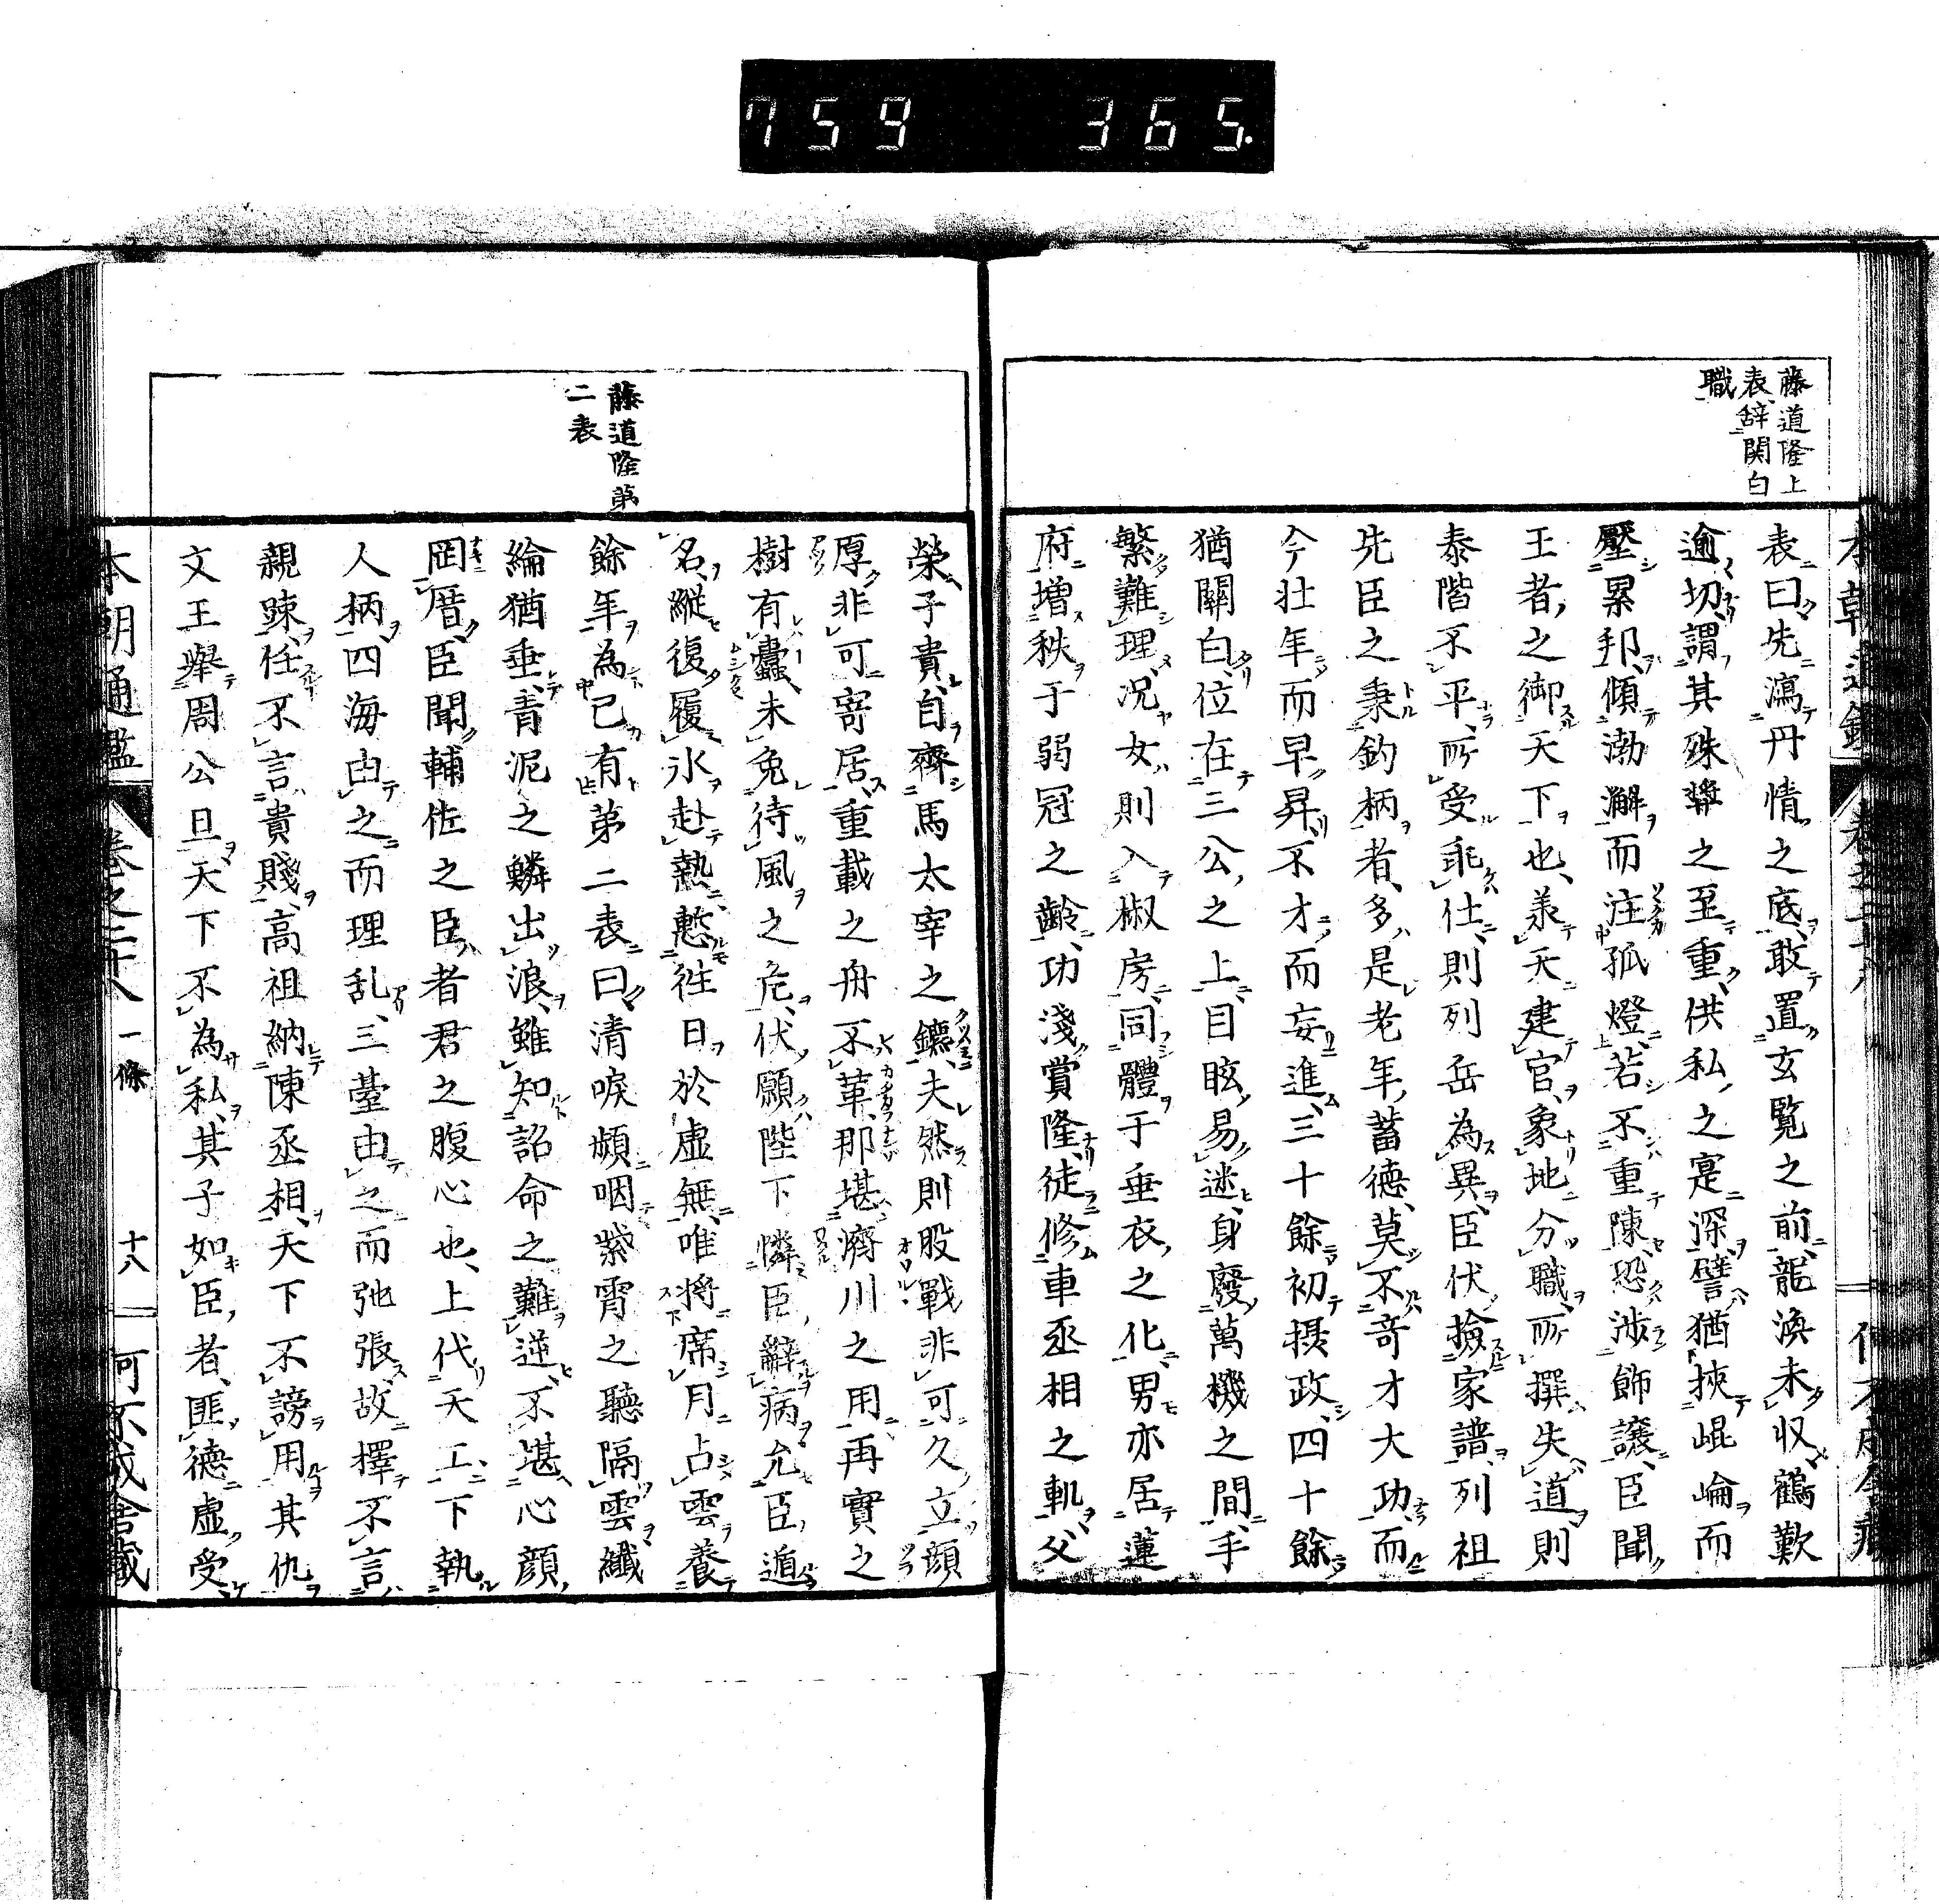 759 365.
藤道隆上
表辭関白
職
表曰先瀉丹情之底敢置玄覧之前龍渙未収鶴歎
逾切謂其殊奬之至重供私之寔深譬猶挾崐崘而
壓累卵傾渤澥而注孤燈若不重陳恐渉飾讓臣聞
王者之御天下也羕天建官象地分職所撰失道則
泰階不平所受乖仕則列岳為異臣伏撿家譜列祖
先臣之秉鈞柄者多是老年蓄德莫不奇才大功而
今壮年而早昇不才而妄進三十餘初摂政四十餘
猶關白位在三公之上目眩易迷身廢萬機之間手
繁難理况女則入椒房同體于垂衣之化男亦居蓮
府増秩于弱冠之齡功淺賞隆徒修車丞相之軌父
藤道隆第
二表
榮子貴自齊馬太宰之鑣夫然則股戰非可久立顔
厚非可寄居重載之舟不革那堪濟川之用再實之
樹有蠹未免待風之危伏願陛下憐臣辭病允臣遁
名縱復履氷赴熱慙徃日於虚無唯将席月占雲養
餘年為已有第二表曰清唳頻咽紫霄之聽隔雲纎
綸猶垂青泥之鱗出浪雖知詔命之難逆不堪心顔
罔厝臣聞輔佐之臣者君之腹心也上代天工下執
人柄四海由之而理乱三臺由之而弛張故擇不言
親踈任不言貴賤高祖納陳丞相天下不謗用其仇
文王舉周公旦天下不為私其子如臣者匪德虚受
本朝通鑑 卷之二十八 一條 十八 何不成舎藏